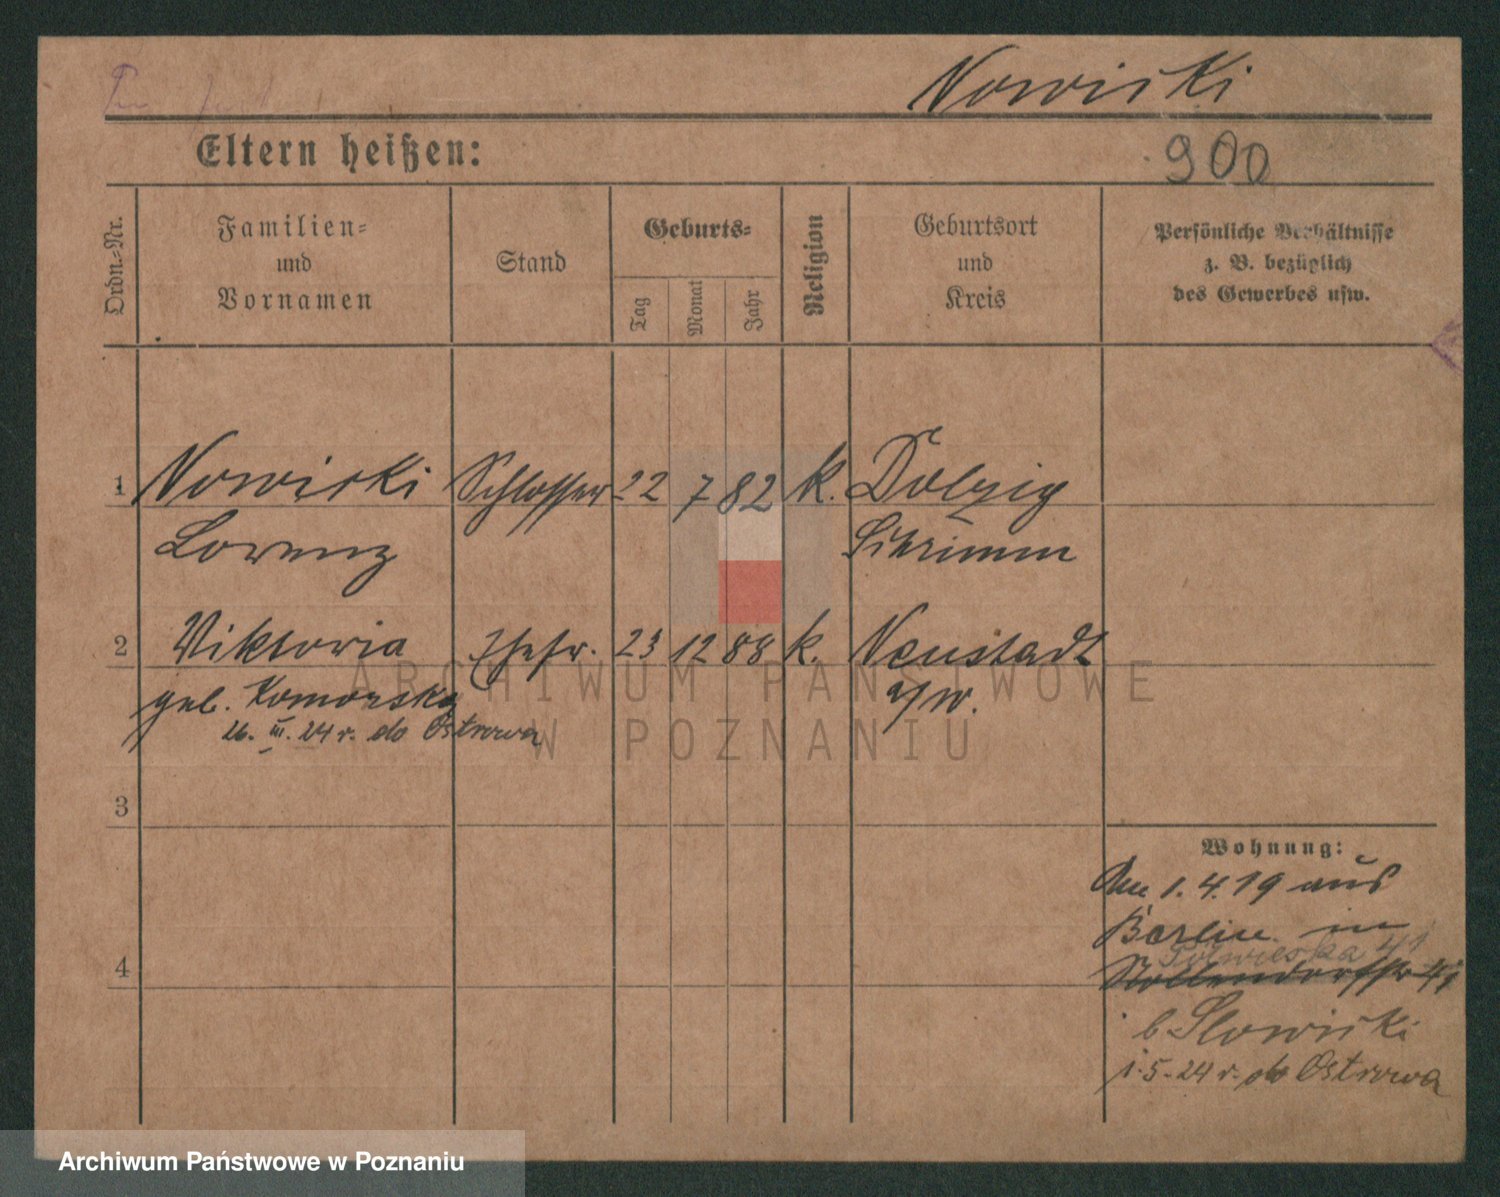 Nowicki
Eltern heißen:
900
Ordn.-Nr.
Familien=
und
Vornamen
Stand
Geburts=
Tag
Monat
Jahr
Religion
Geburtsort
und
Kreis
Persönliche Verhältnisse
z. B. bezüglich
des Gewerbes usw.
1 Nowicki Schlosser 22 7 82 k. Dolzig
Lorenz Schrimm
2 Viktoria Ehefr. 23 12 88 k. Neustadt
geb. Komorska a/W.
26. III. 24 r. do Ostrowa
3
Wohnung:
Am 1. 4. 19 aus
Berlin in
41
4
41
b Slowicki
1-5-24 r. do Ostrowa
ARCHIWUM PAŃSTWOWE
W POZNANIU
Archiwum Państwowe w Poznaniu